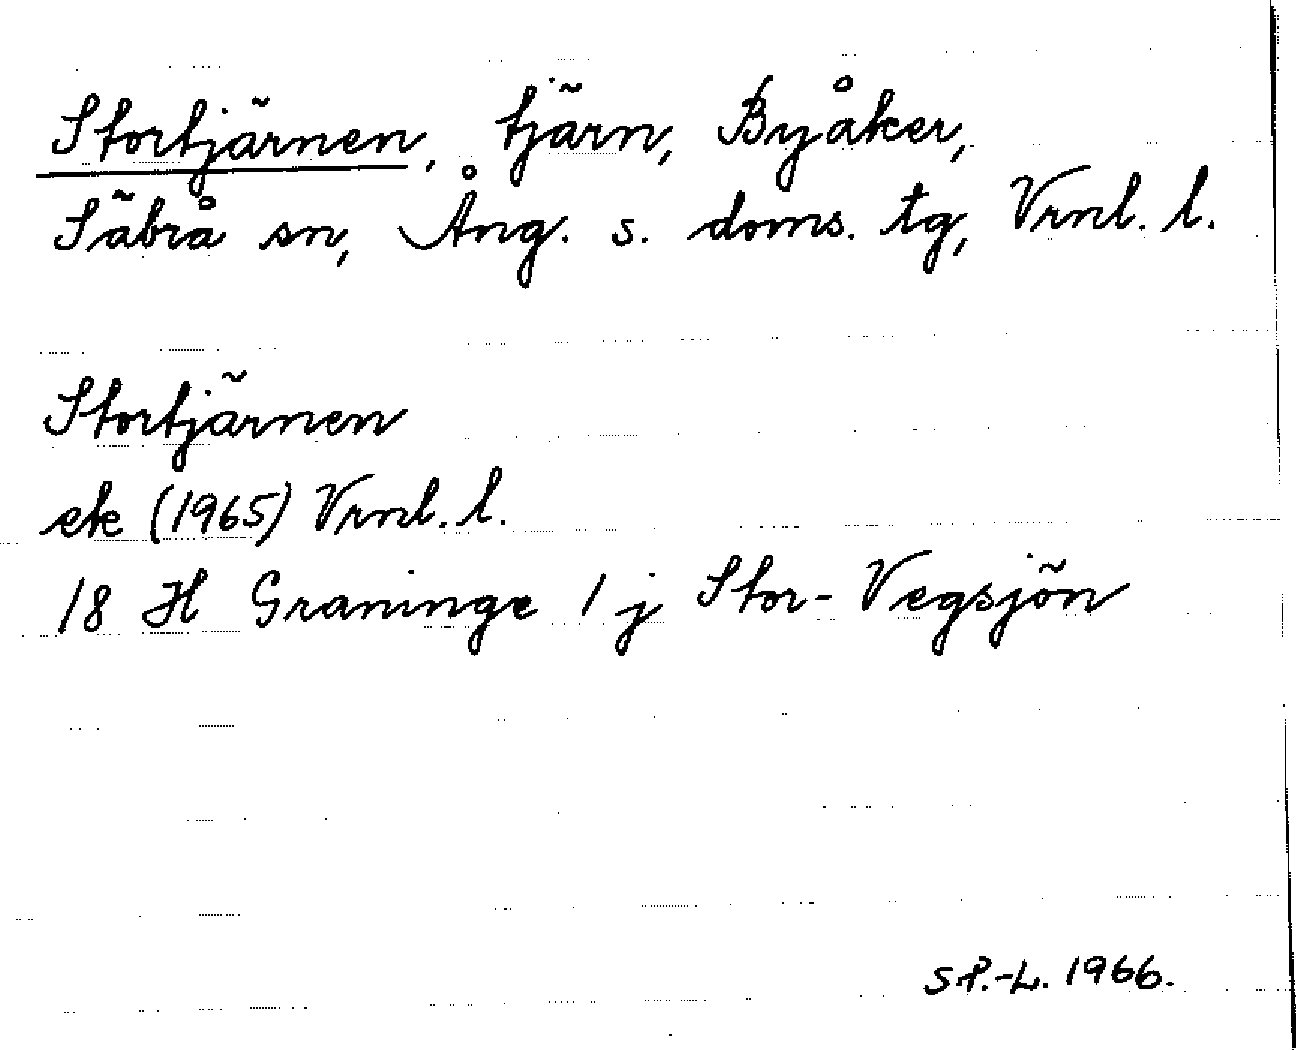 Stortjärnen, tjärn, Byåker,
Säbrå sn, Ång. s. doms. tg, Vrnl. l.
Stortjärnen
ek (1965) Vrnl. l.
18 H Graninge 1 j Stor-Vegsjön
SP.-L. 1966.